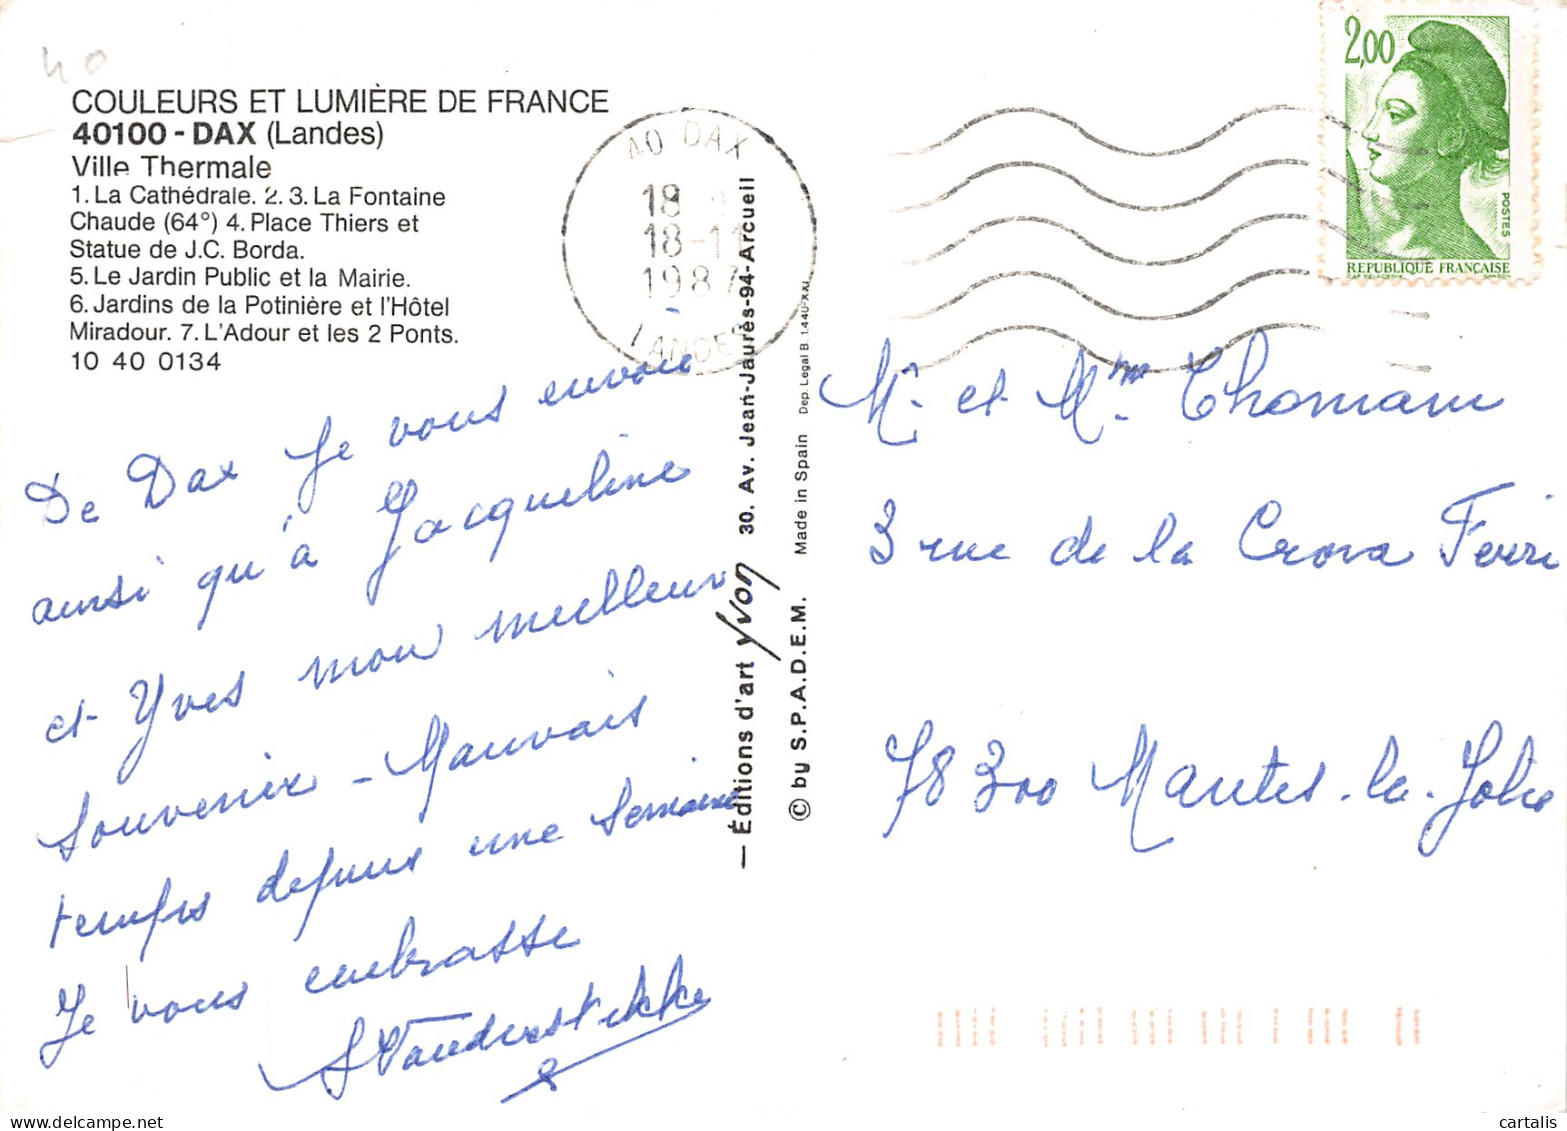 40
COULEURS ET LUMIÈRE DE FRANCE
40100 - DAX (Landes)
Ville Thermale
1. La Cathédrale. 2. 3. La Fontaine
Chaude (64°) 4. Place Thiers et
Statue de J.C. Borda.
5. Le Jardin Public et la Mairie.
6. Jardins de la Potinière et l'Hôtel
Miradour. 7. L'Adour et les 2 Ponts.
10 40 0134
De Dax je vous envoie
ainsi qu'à Jacqueline
et Yves mon meilleur
souvenir - Mauvais
temps depuis une semaine
Je vous embrasse
40 DAX
18
18-11
1987
LANDES
— Éditions d'art Yvon 30. Av. Jean-Jaurès-94-Arcueil
© by S.P.A.D.E.M. Made in Spain Dep. Legal B. 1.440-XXI
2,00
POSTES
REPUBLIQUE FRANÇAISE
Mr et Mme Thomann
3 rue de la Croix
78300 Mantes-la-Jolie
cartalis